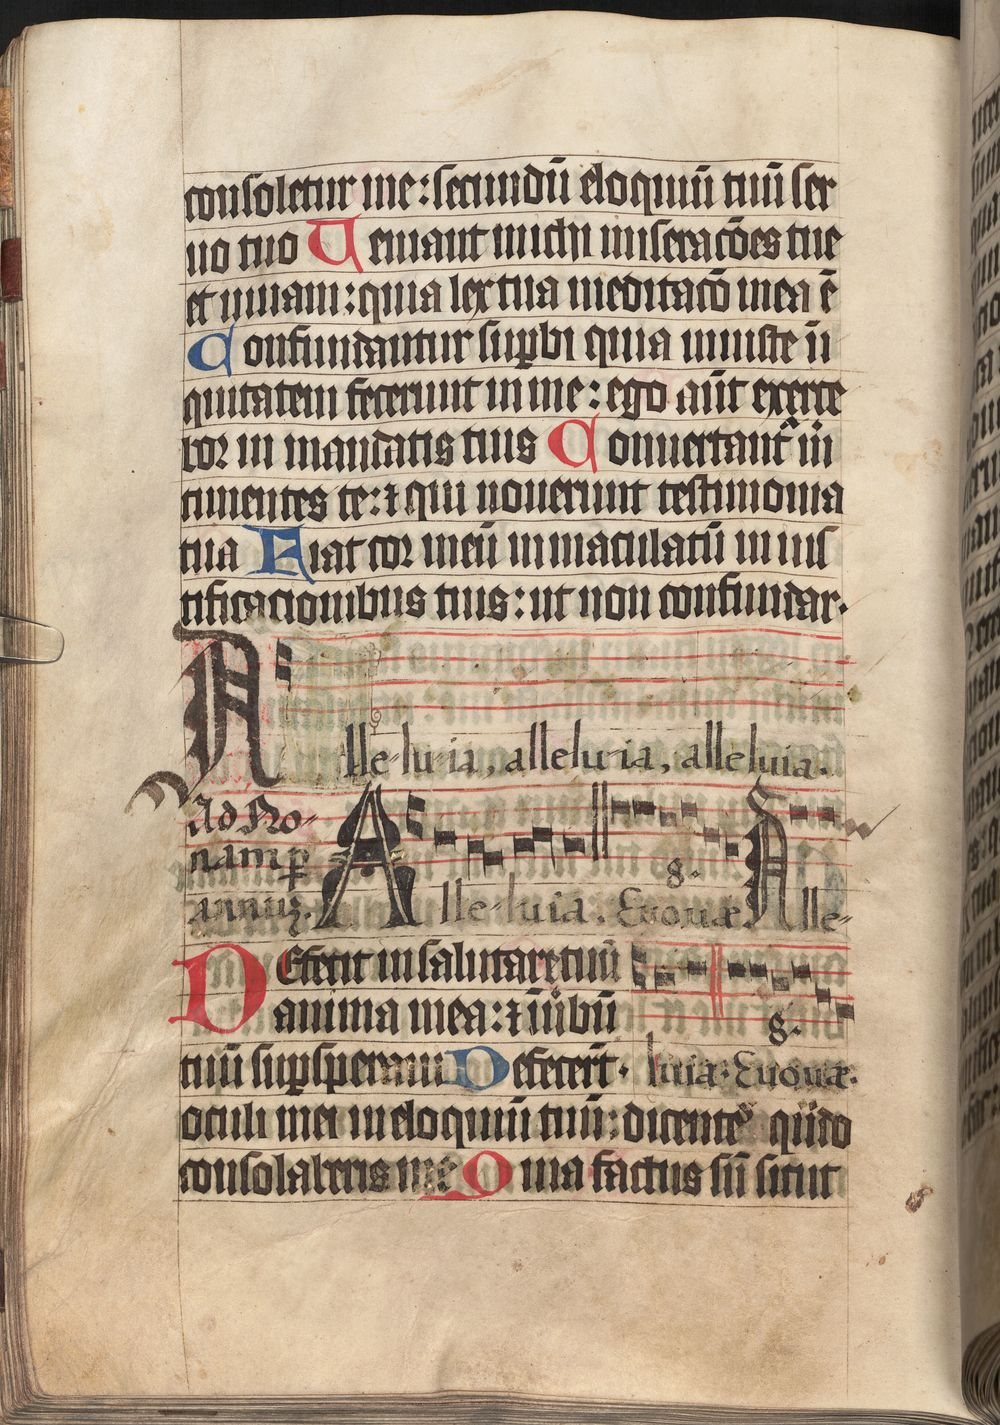 consoletur me: secundū eloquiū tuū ser
uo tuo Veniant michi miseracōes tue
et uiuam: quia lex tua meditacō mea ē
Confundantur supbi quia iniuste ini
quitatem fecerunt in me: ego aūt exerce
bor in mandatis tuis Conuertant᷑ m̄
timentes te: ⁊ qui nouerunt testimonia
tua Fiat cor meū immaculatū in ius
tificacionibus tuis: ut non confundar.
Alle-lu-ia, alleluia, alleluia.
Ad No-
nam p
annuȝ. Alle-luia. Euouæ Alle-
g.
DEfecit in salutare tuū
anima mea: ⁊ in ūbū
g.
tuū supsperaui Defecert̄. luia. Euouæ.
oculi mei in eloquiū tuū: dicentes qn̄do
consolaberis me Quia factus sū sicut